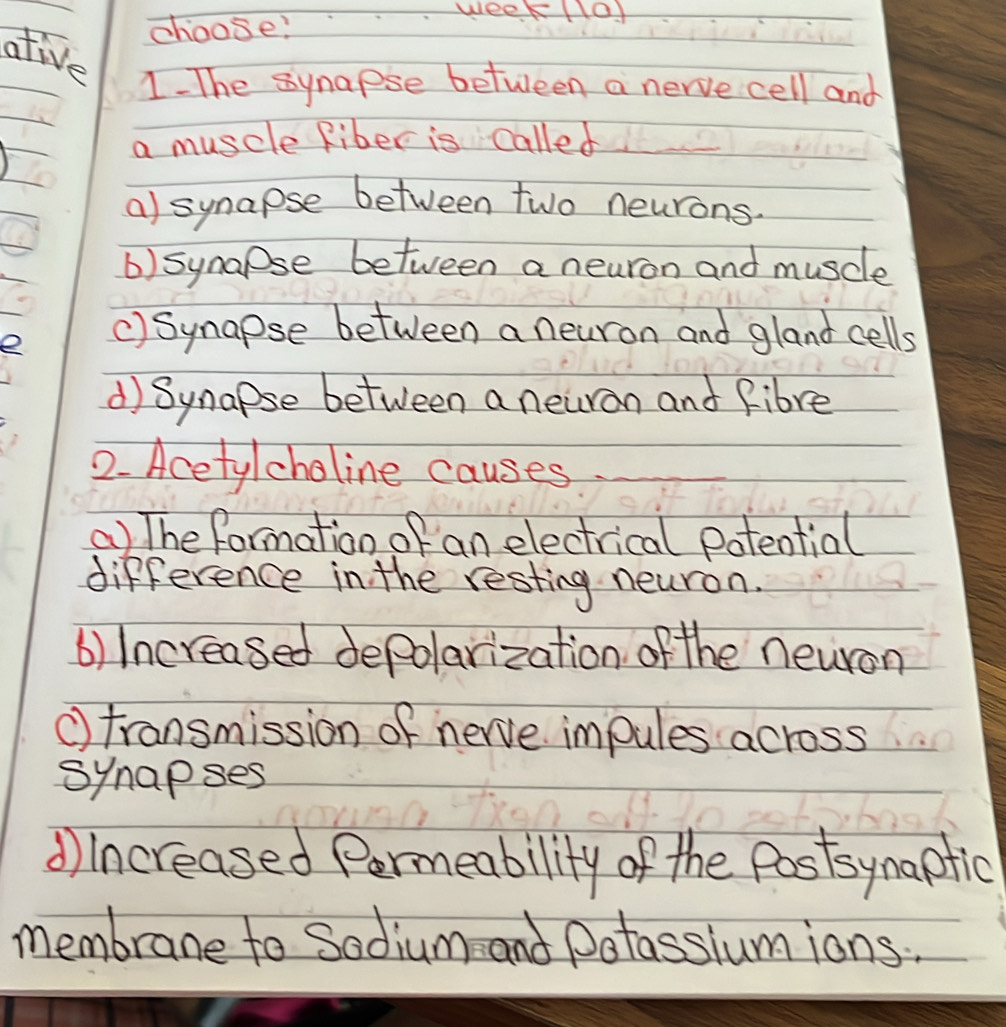 week (10)
choose:
ative
1-The synapse between a nerve cell and
a muscle fiber is called
a) synapse between two neurons.
b) synapse between a neuron and muscle
c) Synapse between a neuron and gland cells
e
d) Synapse between a neuron and fibre
2- Acetylcholine causes
a) The formation of an electrical potential
difference in the resting neuron.
b) Increased depolarization of the neuron
c) transmission of nerve impules across
synapses
d) Increased Permeability of the Postsynaptic
membrane to Sodium and Potassium ions.